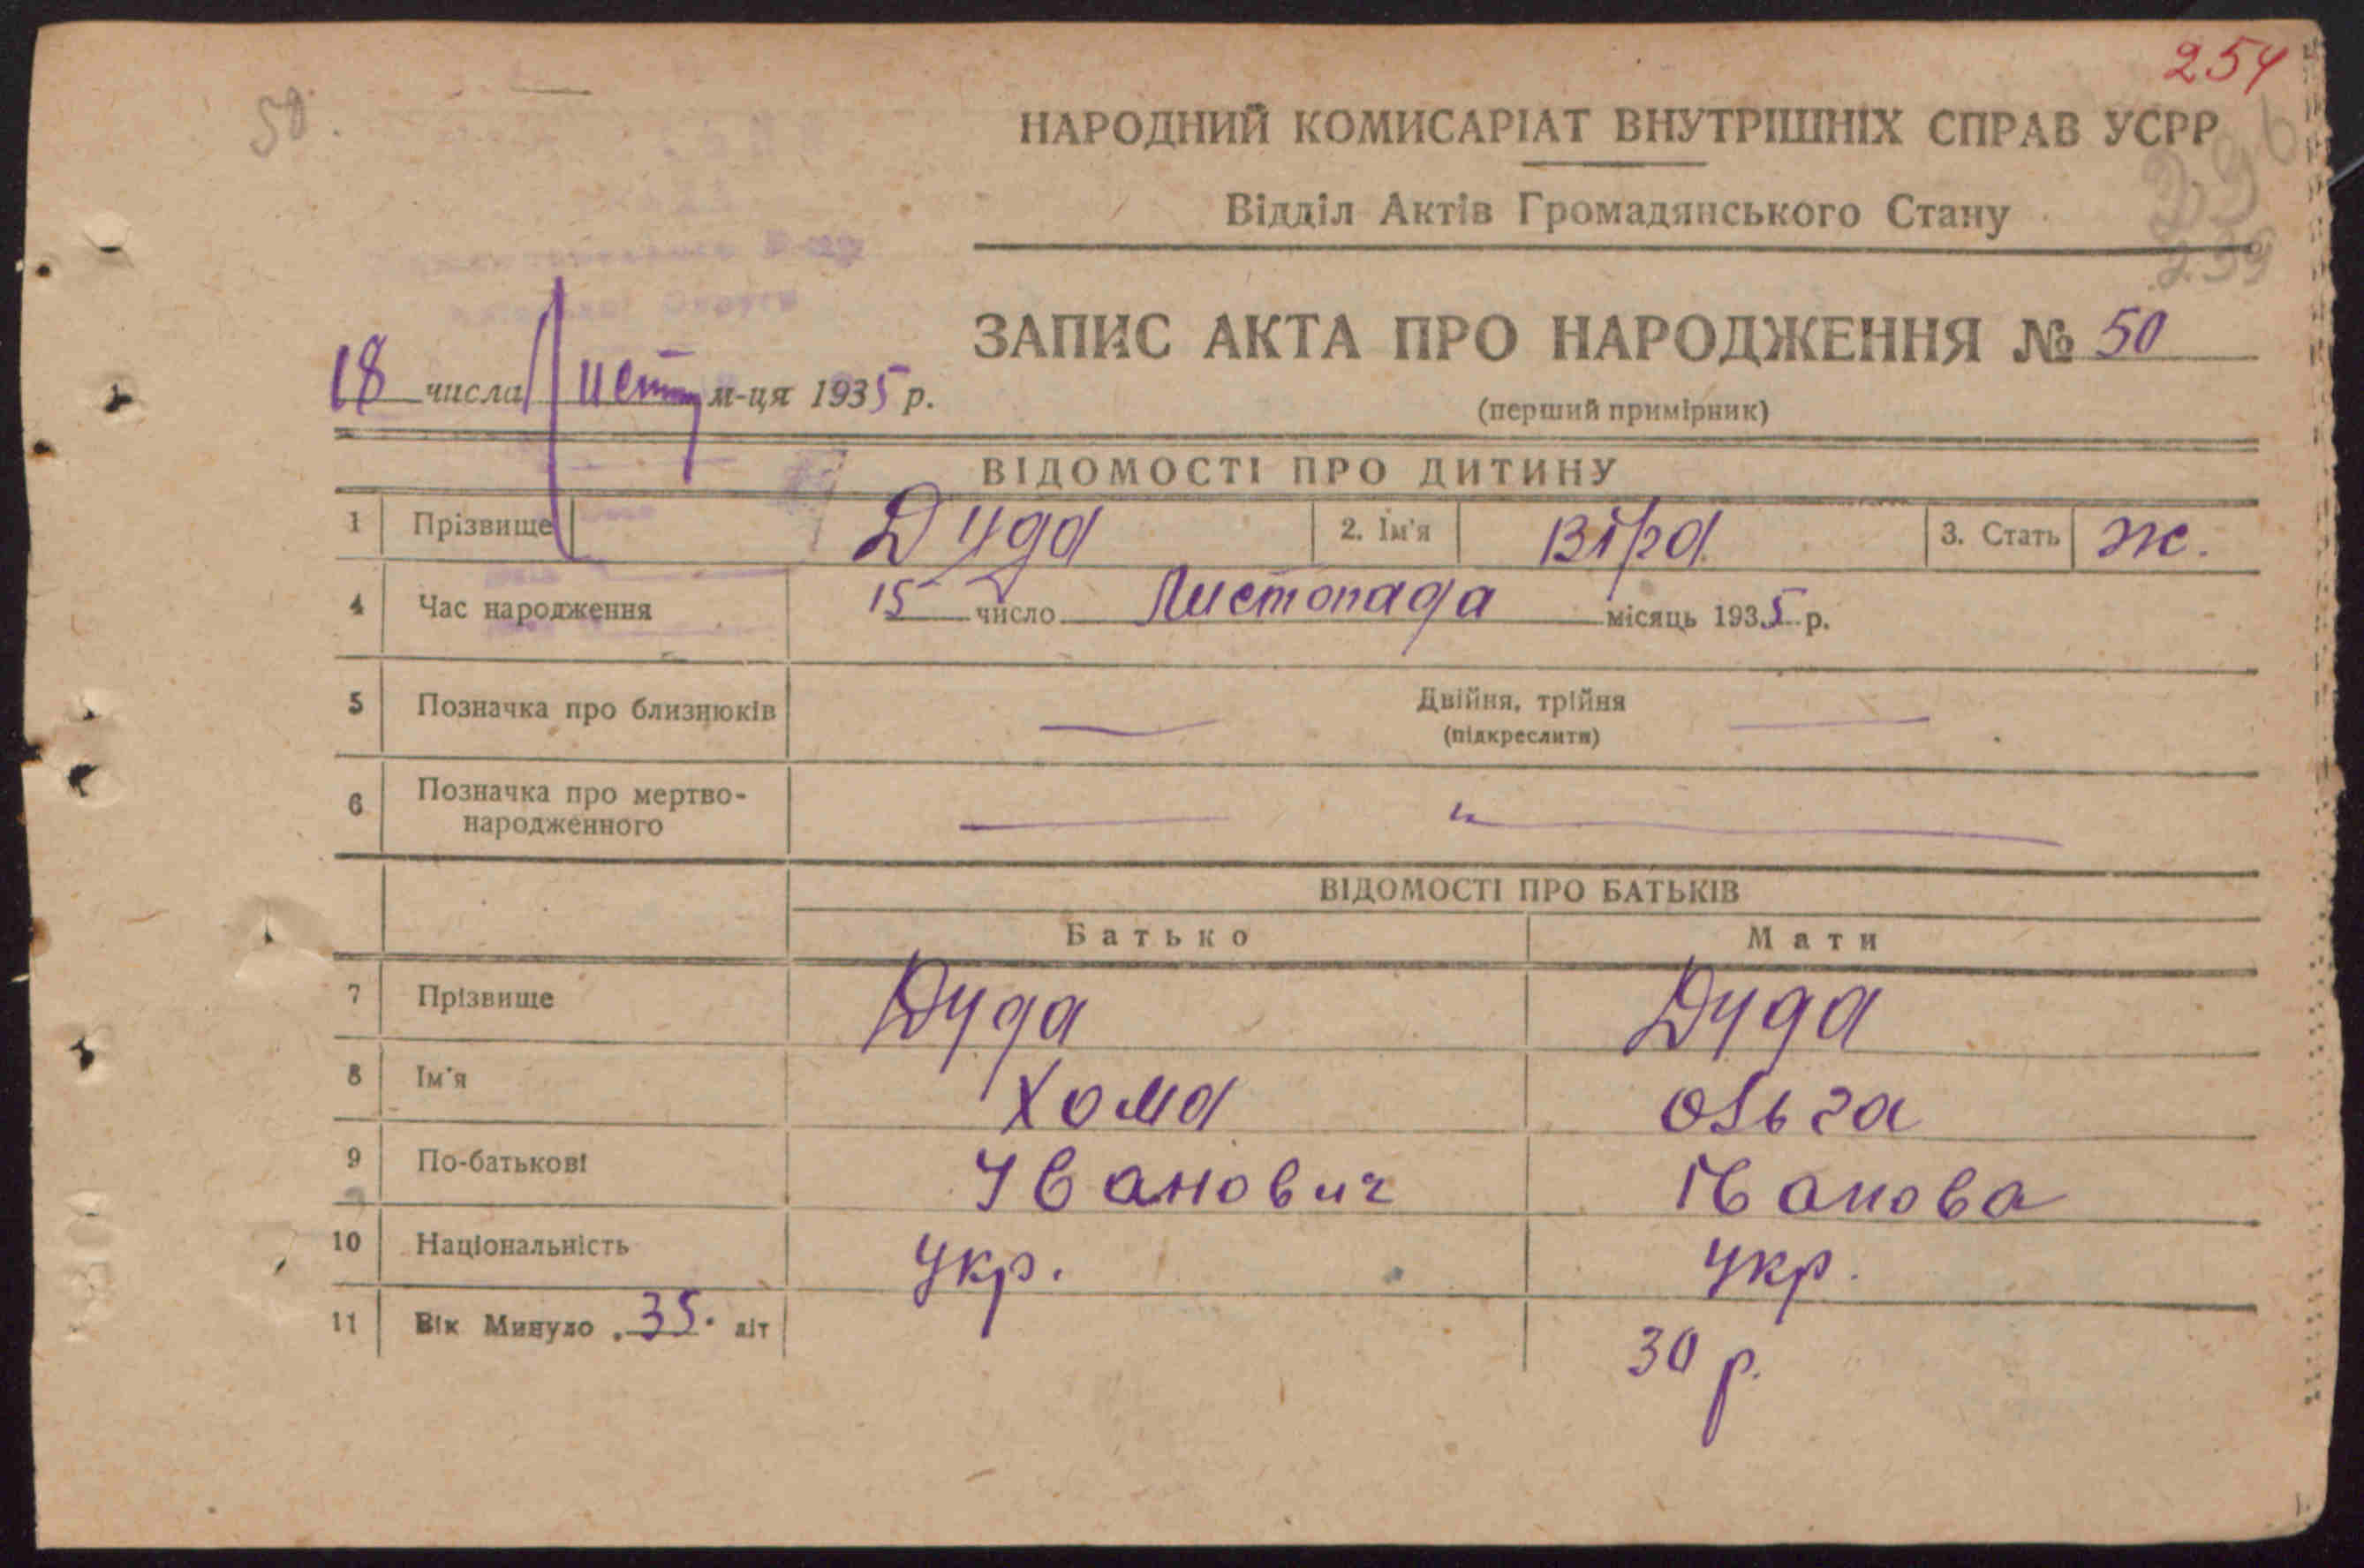 254
50.
НАРОДНИЙ КОМИСАРІАТ ВНУТРІШНІХ СПРАВ УСРР
Відділ Актів Громадянського Стану
239
ЗАПИС АКТА ПРО НАРОДЖЕННЯ № 50
18 числа Лист м-ця 1935 р.
(перший примірник)
ВІДОМОСТІ ПРО ДИТИНУ
1 Прізвище Дуда 2. Ім'я Віра 3. Стать Ж.
4 Час народження 15 число Листопада місяць 1935 р.
5 Позначка про близнюків Двійня, трійня
(підкреслити)
6 Позначка про мертво-
народженного
ВІДОМОСТІ ПРО БАТЬКІВ
Батько Мати
7 Прізвище Дуда Дуда
8 Ім'я Хома Ольга
9 По-батькові Іванович Іванова
10 Національність Укр. Укр.
11 Вік Минуло 35. літ 30 р.